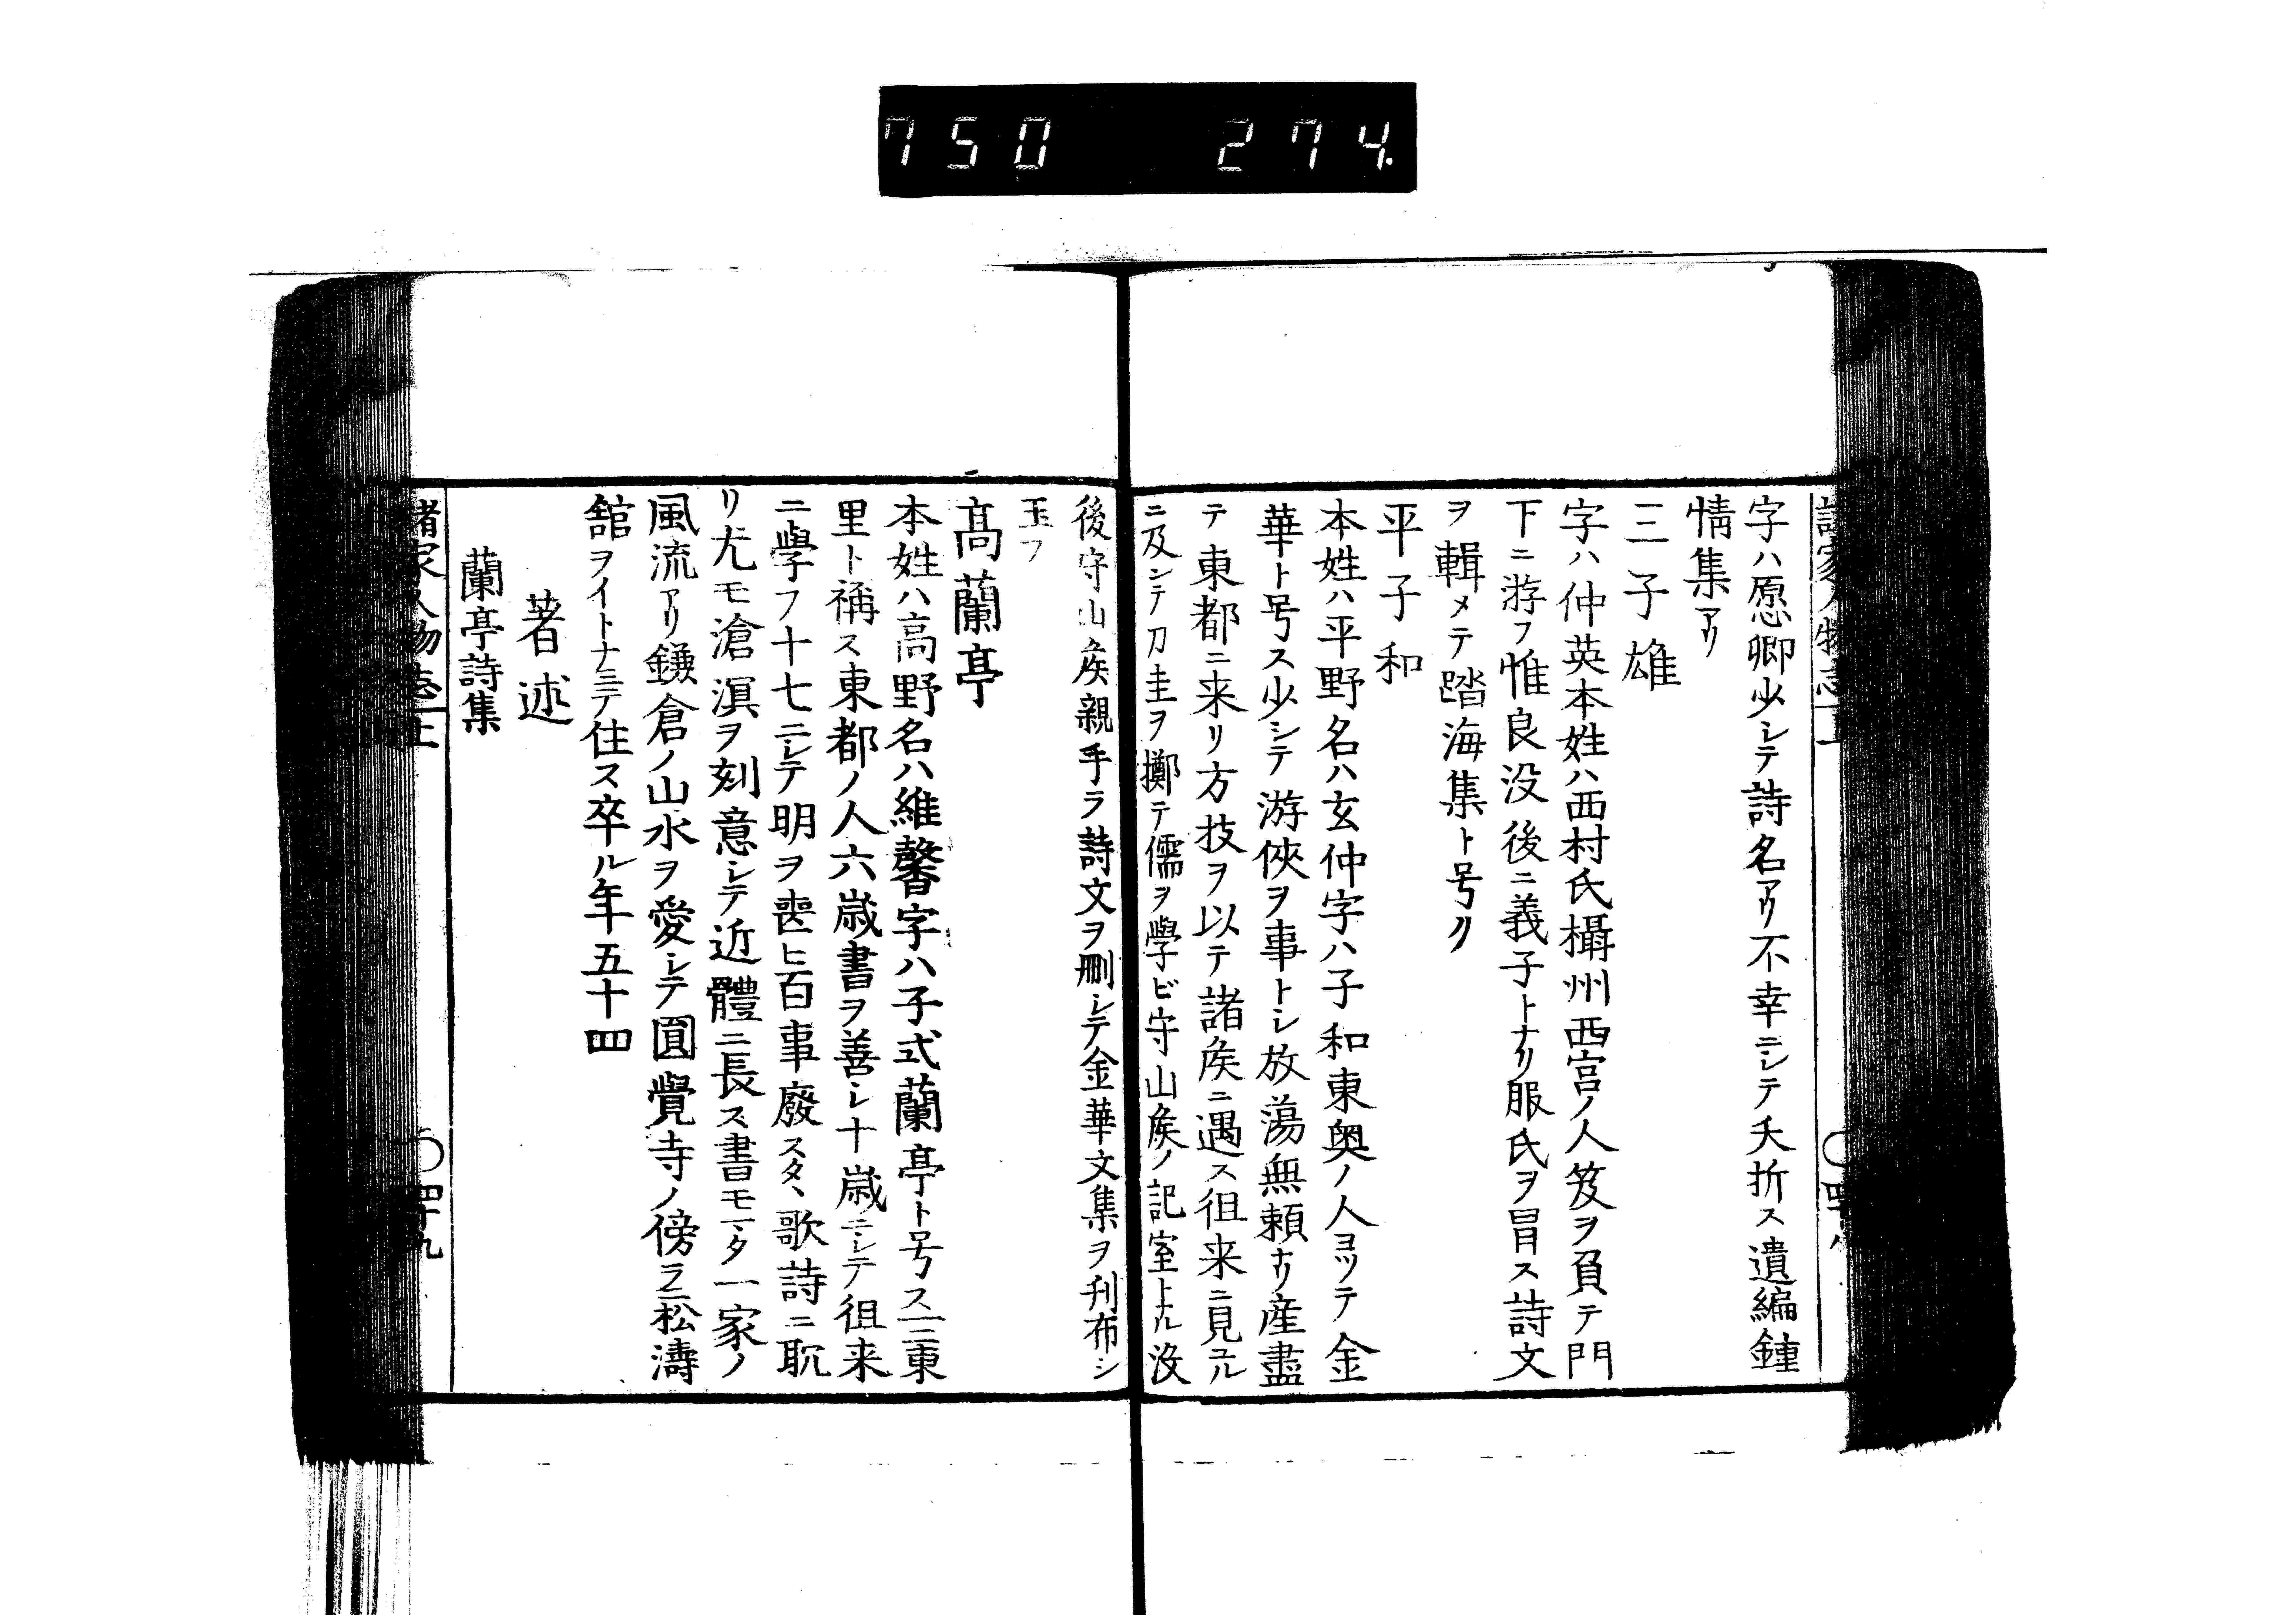 750 274.
諸家人物志上
〇四十八
字ハ愿卿少シテ詩名アリ不幸ニシテ夭折ス遺編鍾
情集アリ
三子雄
字ハ仲英本姓ハ西村氏攝州西宮ノ人笈ヲ負テ門
下ニ游フ惟良没後ニ義子トナリ服氏ヲ冒ス詩文
ヲ輯メテ踏海集ト号ク
平子和
本姓ハ平野名ハ玄仲字ハ子和東奥ノ人ヨツテ金
華ト号ス少シテ游俠ヲ事トシ放蕩無頼ナリ産盡
テ東都ニ来リ方技ヲ以テ諸矦ニ遇ス徂来ニ見ユル
ニ及シテ刀圭ヲ擲テ儒ヲ學ビ守山矦ノ記室トナル没
後守山矦親手ラ詩文ヲ刪シテ金華文集ヲ刋布シ
玉フ
髙蘭亭
本姓ハ高野名ハ維馨字ハ子式蘭亭ト号ス一ニ東
里ト稱ス東都ノ人六歳書ヲ善シ十歳ニシテ徂来
ニ學フ十七ニシテ明ヲ喪ヒ百事廢スタヽ歌詩ニ耽
リ尤モ滄溟ヲ刻意シテ近體ニ長ス書モマタ一家ノ
風流アリ鎌倉ノ山水ヲ愛シテ圓覺寺ノ傍ラニ松濤
舘ヲイトナミテ住ス卒ル年五十四
著述
蘭亭詩集
諸家人物志上
〇四十九